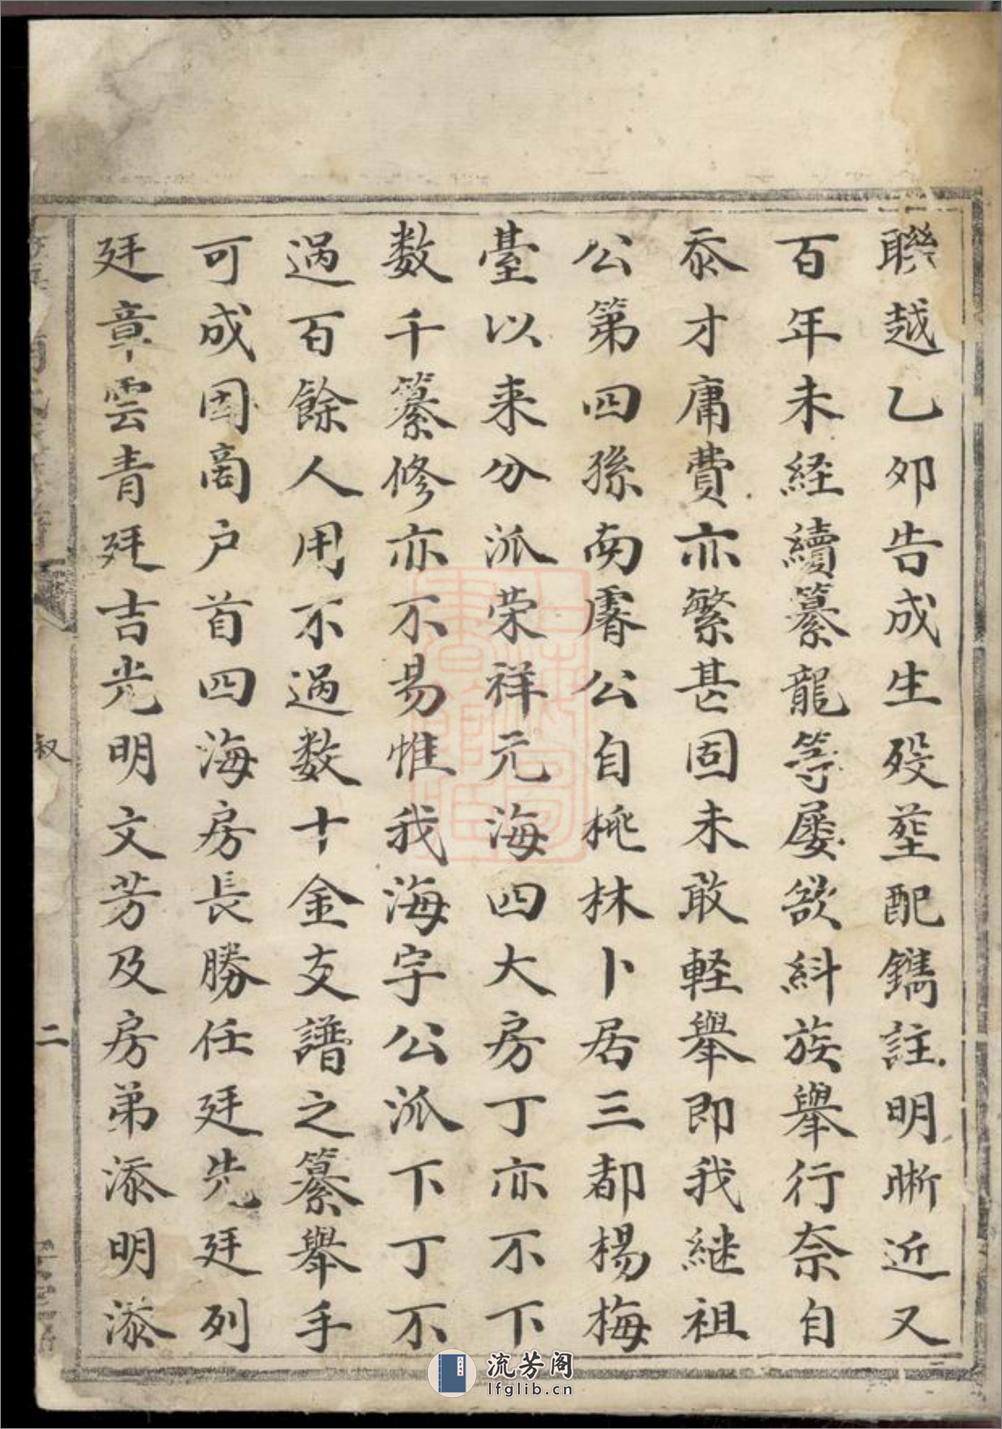 聯越乙夘告成生殁塟配鐫註明晰近又
百年未経續纂龍等屡欲糾族舉行奈自
忝才庸費亦繁甚固未敢軽舉即我継祖
公第四孫南睿公自桃林卜居三都楊梅
臺以来分派荣祥元海四大房丁亦不下
数千纂修亦不易惟我海字公派下丁不
過百餘人用不過数十金支譜之纂舉手
可成因啇户首四海房長勝任廷先廷列
廷章雲青廷吉光明文芳及房弟添明添
叙
二
流芳阁
lfglib.cn